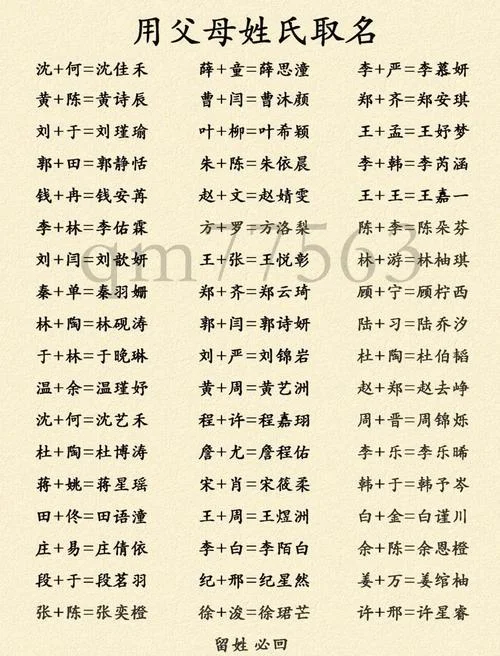 用父母姓氏取名
沈+何=沈佳禾 薛+童=薛思潼 李+严=李慕妍
黄+陈=黄诗辰 曹+闫=曹沐颜 郑+齐=郑安琪
刘+于=刘瑾瑜 叶+柳=叶希颖 王+孟=王妤梦
郭+田=郭静恬 朱+陈=朱依晨 李+韩=李芮涵
钱+冉=钱安苒 赵+文=赵婧雯 王+王=王嘉一
李+林=李佑霖 方+罗=方洛梨 陈+李=陈朵芬
刘+闫=刘歆妍 王+张=王悦彰 林+游=林柚琪
秦+单=秦羽姗 郑+齐=郑云琦 顾+宁=顾柠西
林+陶=林砚涛 郭+闫=郭诗妍 陆+习=陆乔汐
于+林=于晚琳 刘+严=刘锦岩 杜+陶=杜伯韬
温+余=温瑾妤 黄+周=黄艺洲 赵+郑=赵去峥
沈+何=沈艺禾 程+许=程嘉珝 周+晋=周锦烁
杜+陶=杜博涛 詹+尤=詹程佑 李+乐=李乐晞
蒋+姚=蒋星瑶 宋+肖=宋筱柔 韩+于=韩予岑
田+佟=田语潼 王+周=王煜洲 白+金=白谨川
庄+易=庄倩依 李+白=李陌白 余+陈=余恩橙
段+于=段茗羽 纪+邢=纪星然 姜+万=姜绾柚
张+陈=张奕橙 徐+浚=徐珺芒 许+邢=许星睿
留姓 必回
qm77563